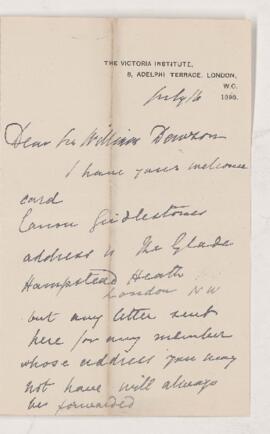 THE VICTORIA INSTITUTE,
8, ADELPHI TERRACE, LONDON,
W.C.
July 16
Dear Sir William Dawson
I have your welcome
card
Canon Girdlestones
address is The Glade
Hampstead Heath
London NW
but any letter sent
here for any member
whose address you may
not have will always
be forwarded